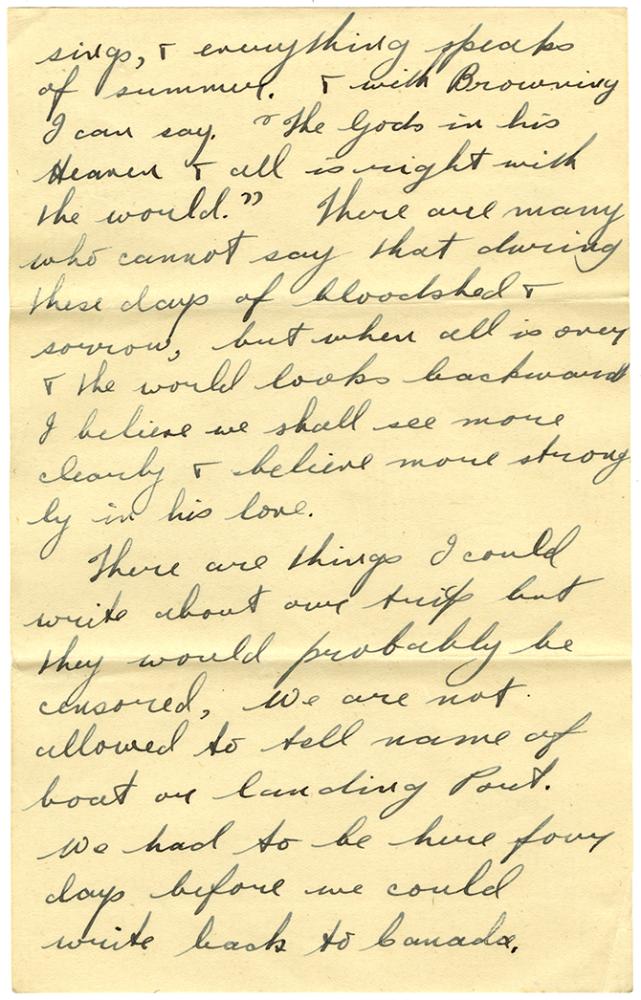 sings, & everything speaks
of summer. & with Browning
I can say. "The Gods in his
Heaven & all is right with
the world." There are many
who cannot say that during
these days of bloodshed &
sorrow, but when all is over
& the world looks backward
I believe we shall see more
clearly & believe more strong
ly in his love.
There are things I could
write about our trip but
they would probably be
censored, We are not
allowed to tell name of
boat or landing Port.
We had to be here four
days before we could
write back to Canada.